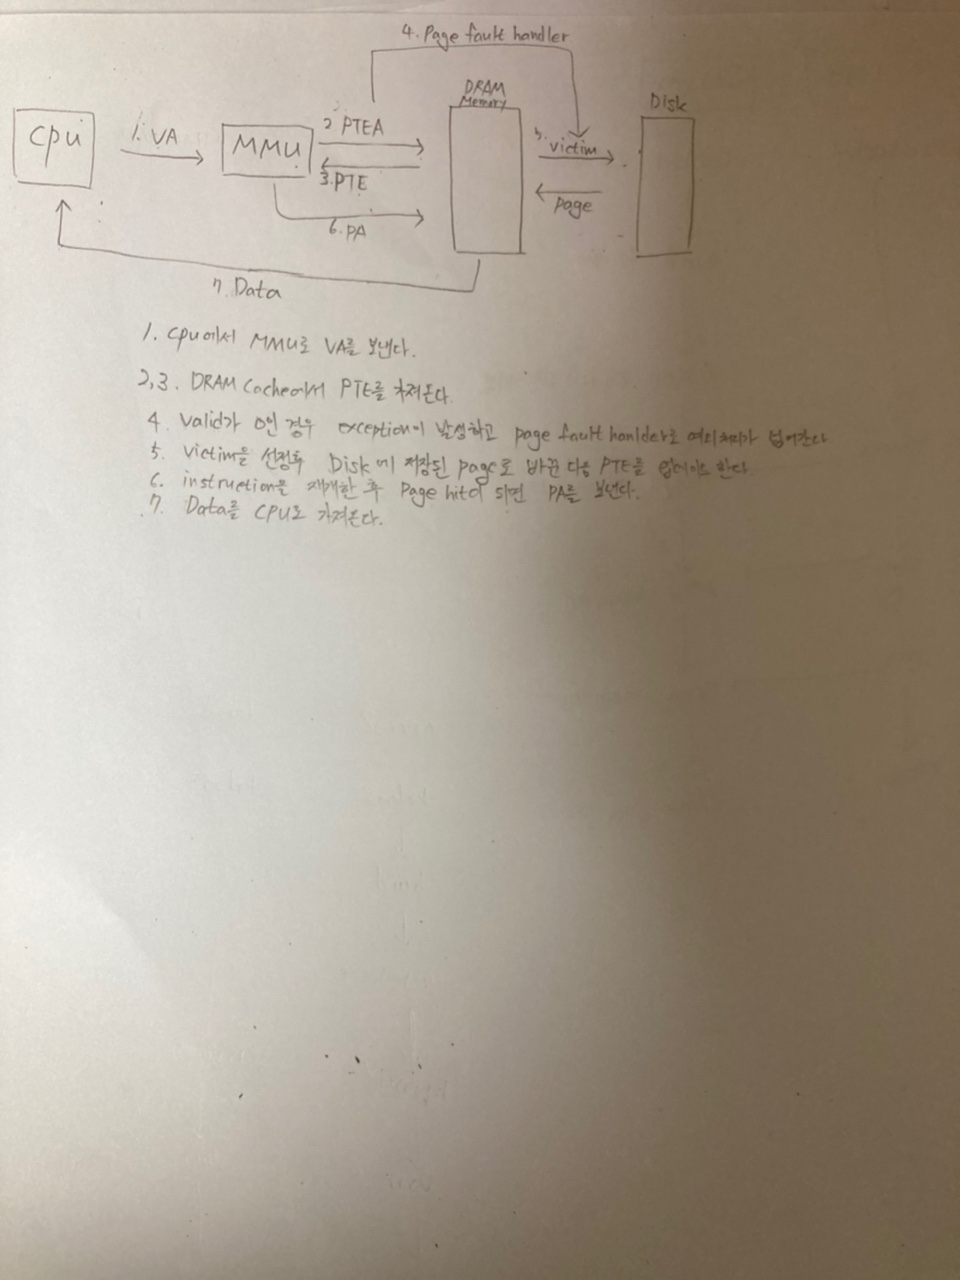 4. Page fault handler
DRAM
Memory
Disk
CPU
1. VA
MMU
2 PTEA
3. PTE
5. victim
page
6. PA
7. Data
1. CPU에서 MMU로 VA를 보낸다.
2,3. DRAM Cache에서 PTE를 가져온다
4. Valid가 0인 경우 exception이 발생하고 page fault hanlder로 예외처리가 넘어간다
5. victim을 선정후 Disk에 저장된 page로 바꾼 다음 PTE를 업데이트 한다
6. instruction을 재개한 후 Page hit이 되면 PA를 보낸다.
7. Data를 CPU로 가져온다.